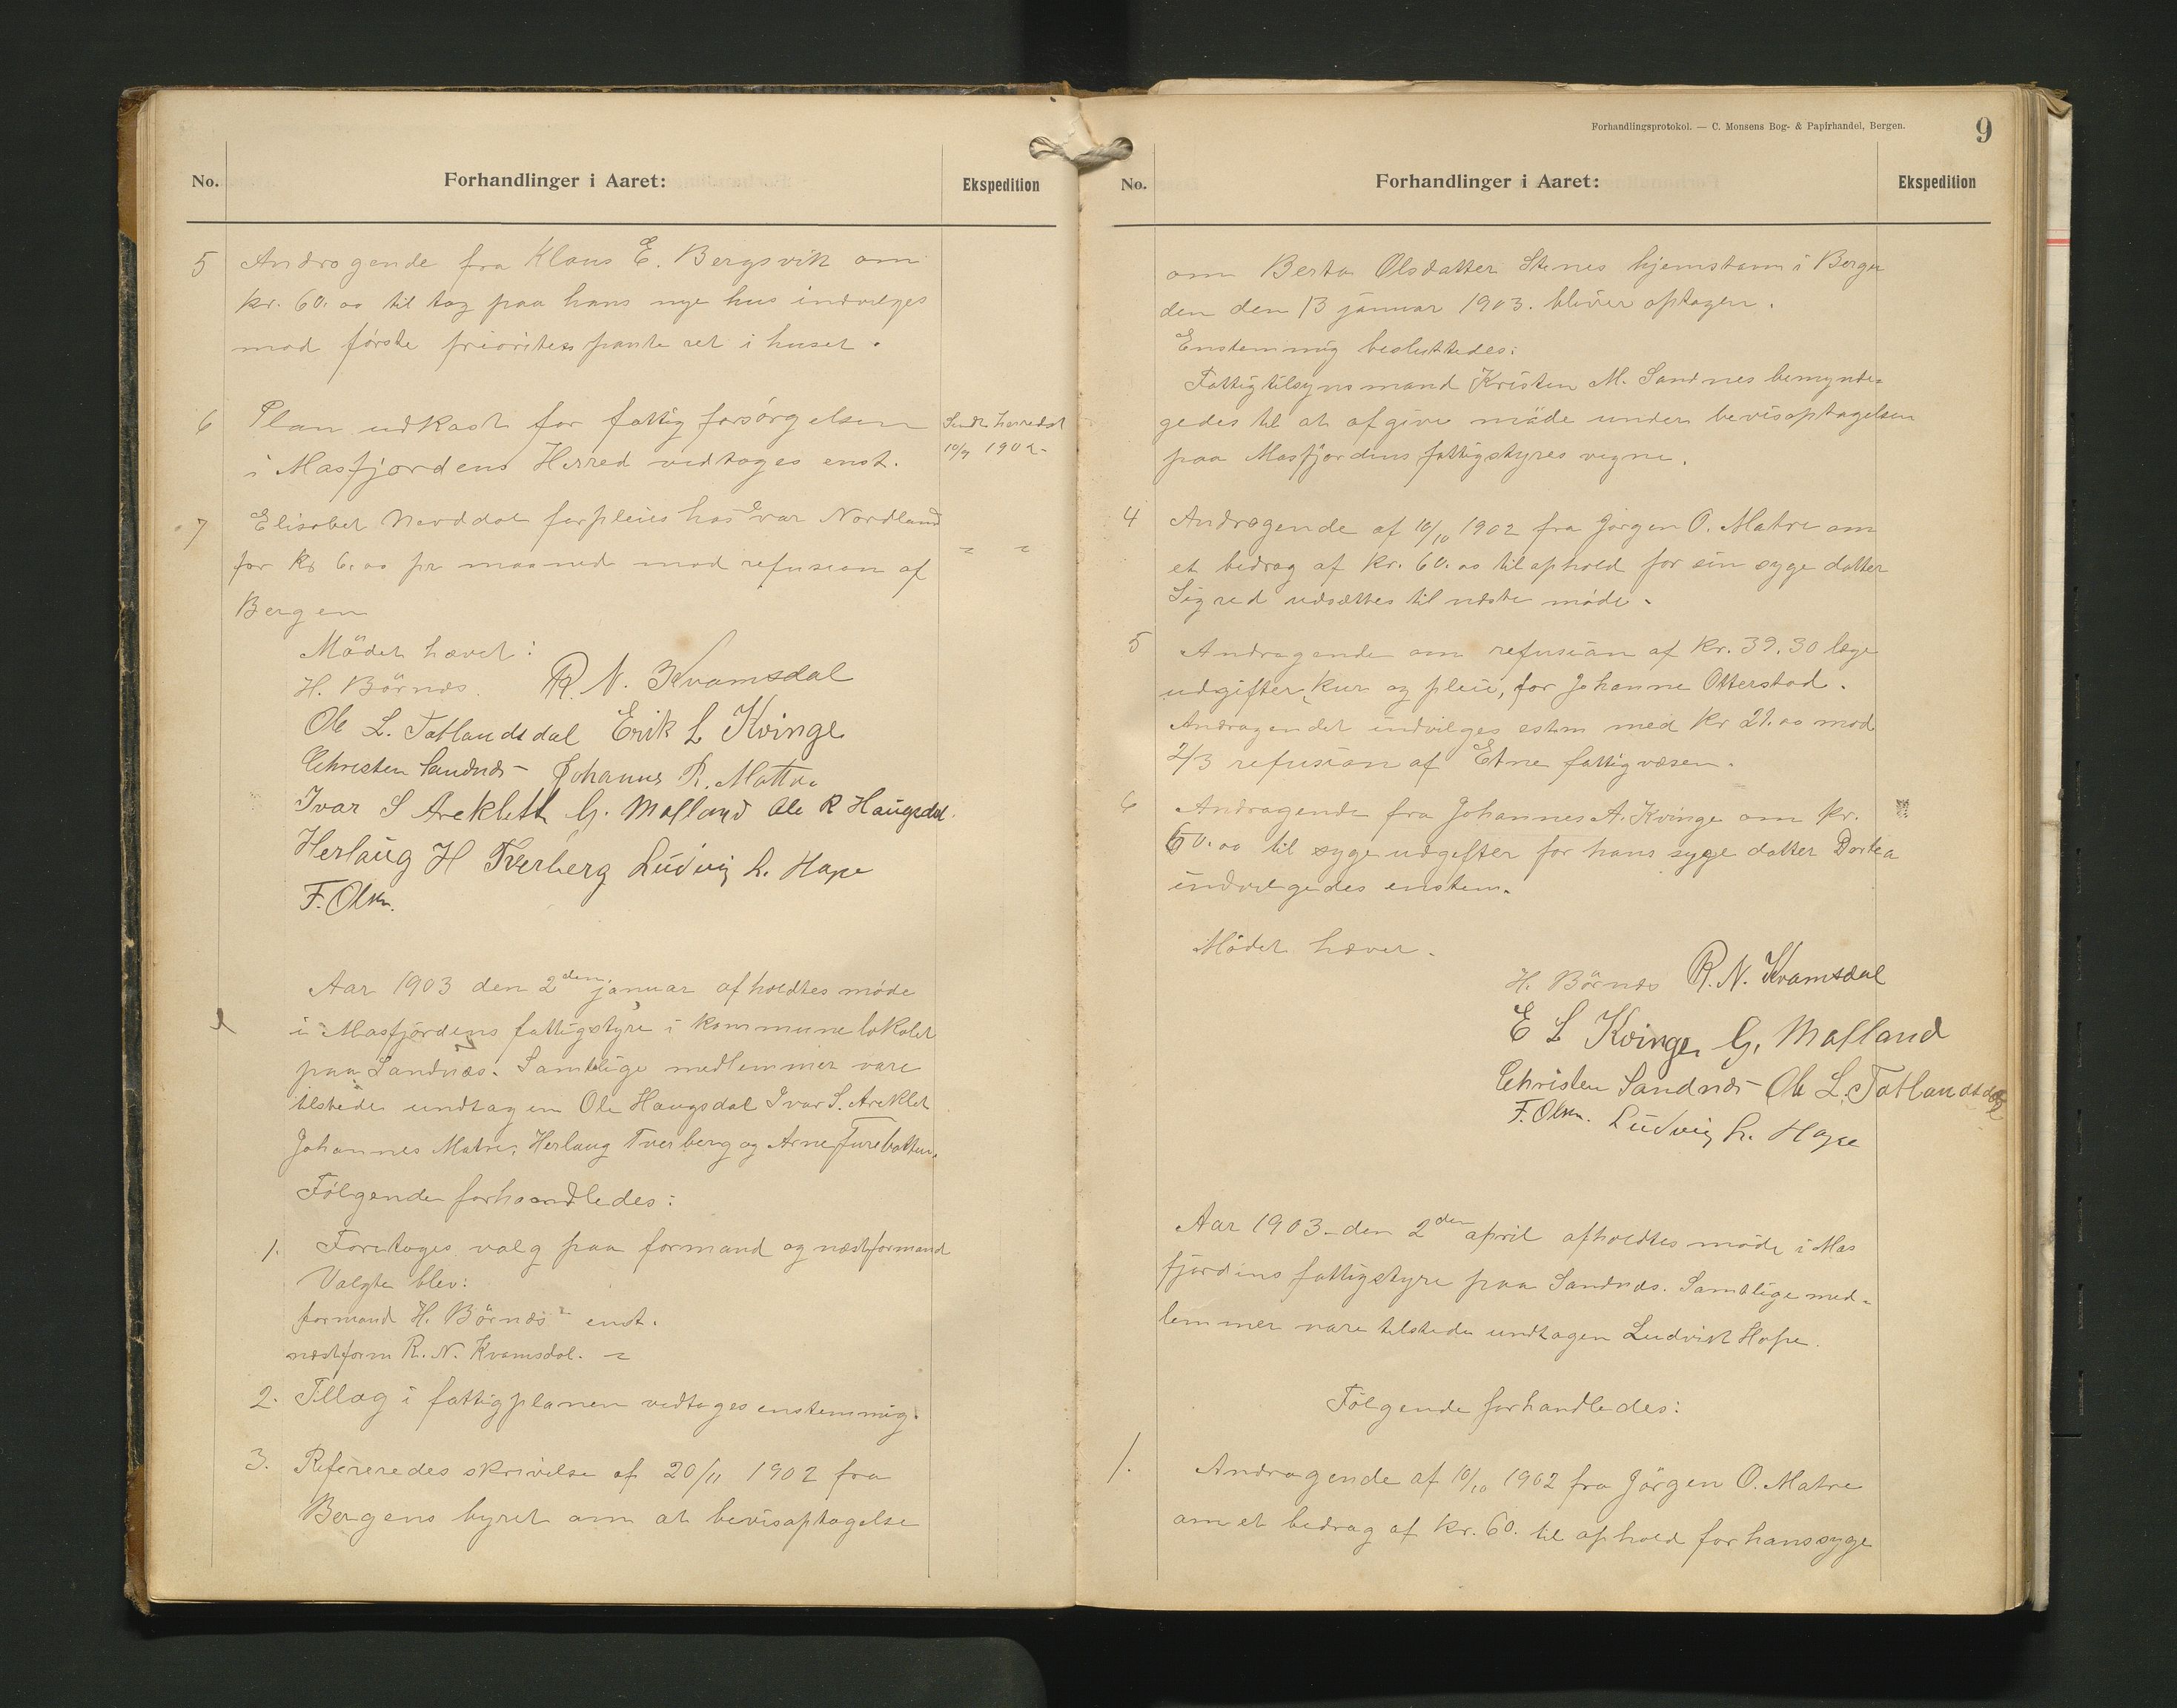 No.
Forhandlinger i Aaret:
Ekspedition
5 Androgende fra Klaus E. Bergsvik om
kr. 60.00 til tag paa hans nye hus indvilges
mod förste prioritets pante ret i huset.
6 Plan udkast for fattig forsörgelsen
i Masfjordens Herred vedtoges enst.
Sendt herredst
10/9 1902.
7 Elisabet Nevddal forpleies hos Ivar Nordland
for kr 6.00 pr maaned mod refusion af
Bergen
Mödet hævet:
H. Börnæs. R. N. Kvamsdal
Ole L. Totlandsdal Erik L Kvinge
Christen Sandnæs Johannes R. Mattre
Ivar S Areklett G. Molland Ole R Haugsdal.
Herlaug H Tverberg Ludvig L. Hope
F. Olsen.
Aar 1903 den 2den januar afholdtes möde
i Masfjordens fattigstyre i kommunelokalet
paa Sandnæs. Samtlige medlemmer vare
tilstede undtagen Ole Haugsdal Ivar S. Areklet
Johannes Matre, Herlaug Tverberg og Arne Furebotten.
Fölgende forhandledes:
1. Foretoges valg paa formand og næstformand
Valgte blev:
formand H. Börnæs enst.
næstform R. N. Kvamsdal. =
2. Tillæg i fattigplanen vedtoges enstemmig.
3. Refereredes skrivelse af 20/11 1902 fra
Bergens byret om at bevisoptagelse
Forhandlingsprotokol. — C. Monsens Bog- & Papirhandel, Bergen.
9
No.
Forhandlinger i Aaret:
Ekspedition
om Berta Olsdatter Stenes hjemstavn i Bergen
den den 13 januar 1903. bliver optagen.
Enstemmig besluttedes:
Fattigtilsynsmand Kristen M. Sandnes bemyndi-
gedes til at afgive möde under bevisoptagelsen
paa Masfjordens fattigstyres vegne.
4 Andragende af 10/10 1902 fra Jörgen O. Matre om
et bedrag af kr. 60.00 til ophold for sin syge datter
Sigred udsættes til næste möde.
5 Andragende om refusion af kr. 39.30 læge
udgifter, kur og pleie, for Johanne Otterstad.
Andragendet indvilges estm med kr 21.00 mod
2/3 refusion af Etne fattigvæsen.
6 Andragende fra Johannes A. Kvinge om kr.
60.00 til syge udgifter for hans syge datter Dortea
indvilgedes enstem.
Mödet hæver.
H. Börnæs R. N. Kvamsdal
E L Kvinge G. Molland
Christen Sandnæs Ole L. Totlandsdal
F. Olsen. Ludvig L. Hope
Aar 1903 den 2den april afholdtes möde i Mas
fjordens fattigstyre paa Sandnæs. Samtlige med-
lemmer vare tilstede undtagen Ludvik Hope.
Fölgende forhandledes:
1. Andragende af 10/10 1902 fra Jörgen O. Matre
om et bedrag af kr. 60. til ophold for hans syge